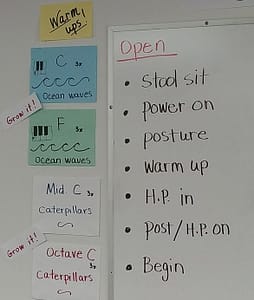 Warm
ups.
C 3x
Ocean waves
Grow it!
F 3x
Ocean waves
Mid. C 3x
Caterpillars
Grow it!
Octave C
3x
Caterpillars
Open
• Stool sit
• power on
• posture
• warm up
• H.P. in
• Post/H.P. on
• Begin